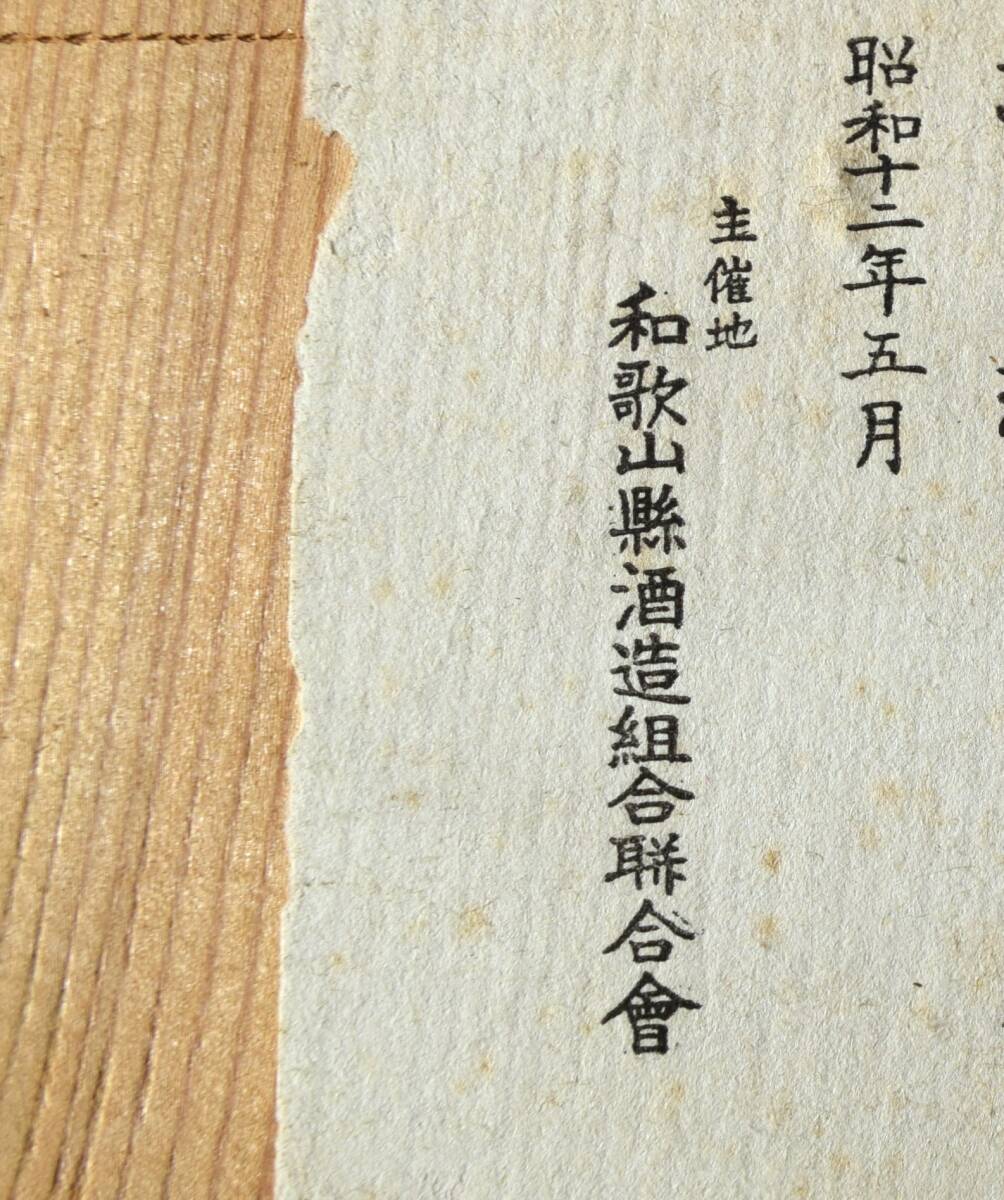 昭和十二年五月
主催地
和歌山縣酒造組合聯合會